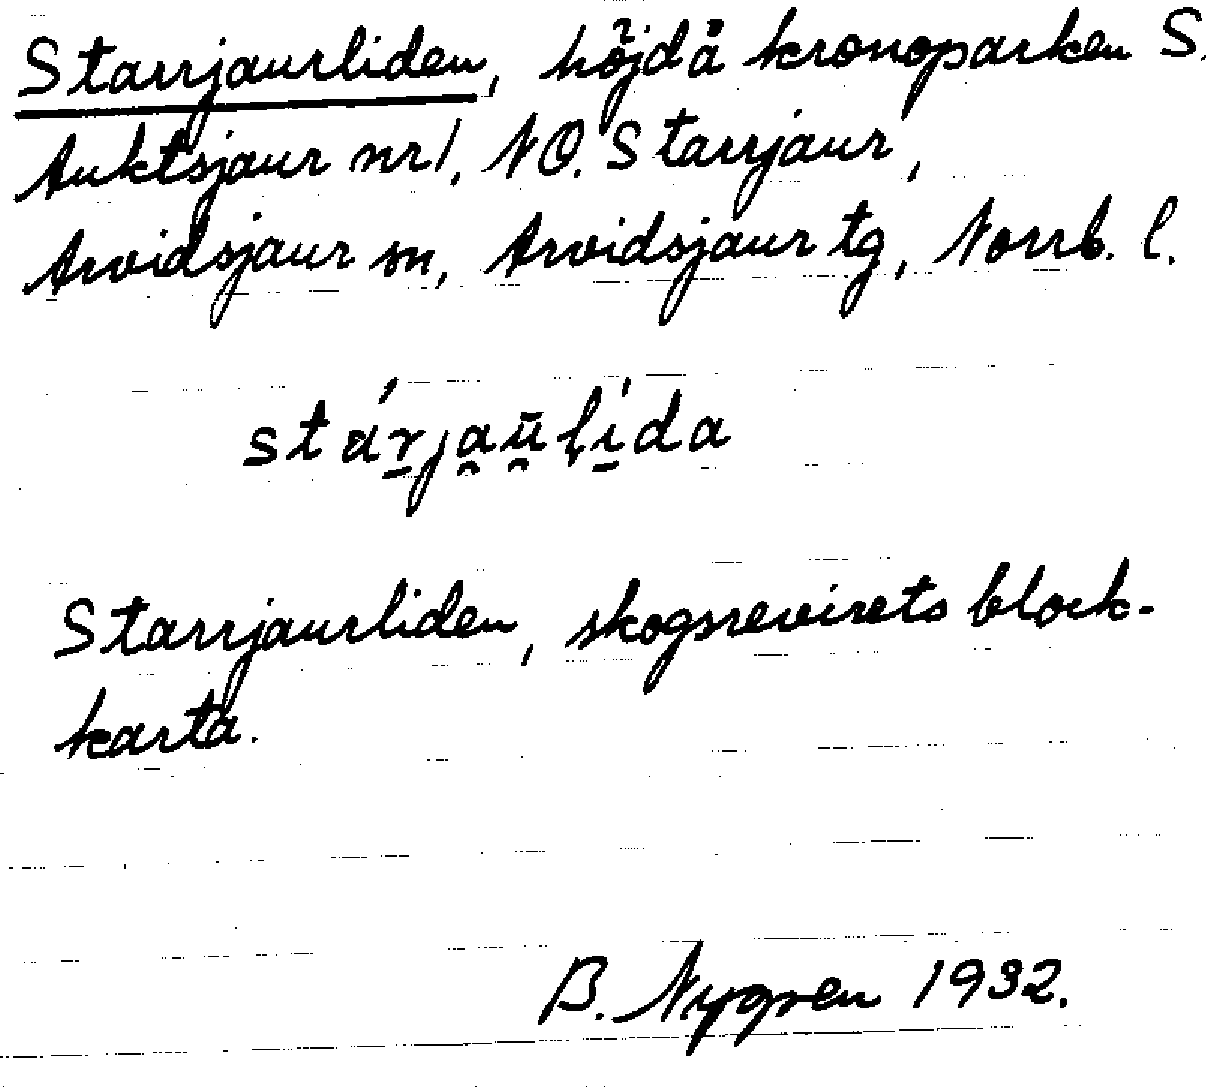 Starrjaurliden, höjd å kronoparken S.
Auktsjaur nr 1, NO. Starrjaur,
Arvidsjaur sn, Arvidsjaur tg, Norrb. l.
stáṟja̯ū̯lí̱da
Starrjaurliden, skogsrevirets block-
karta.
B. Nygren 1932.